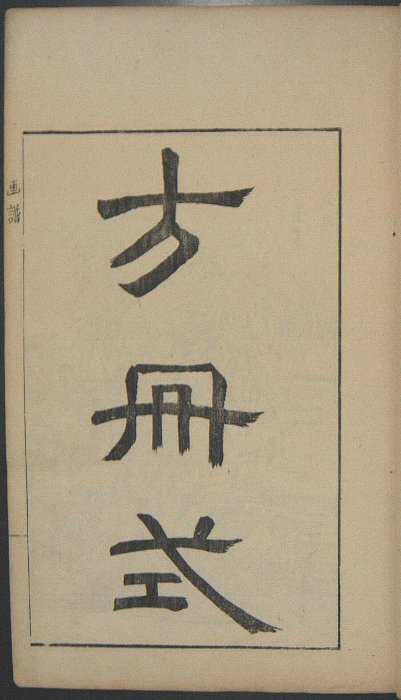 方冊式
画譜